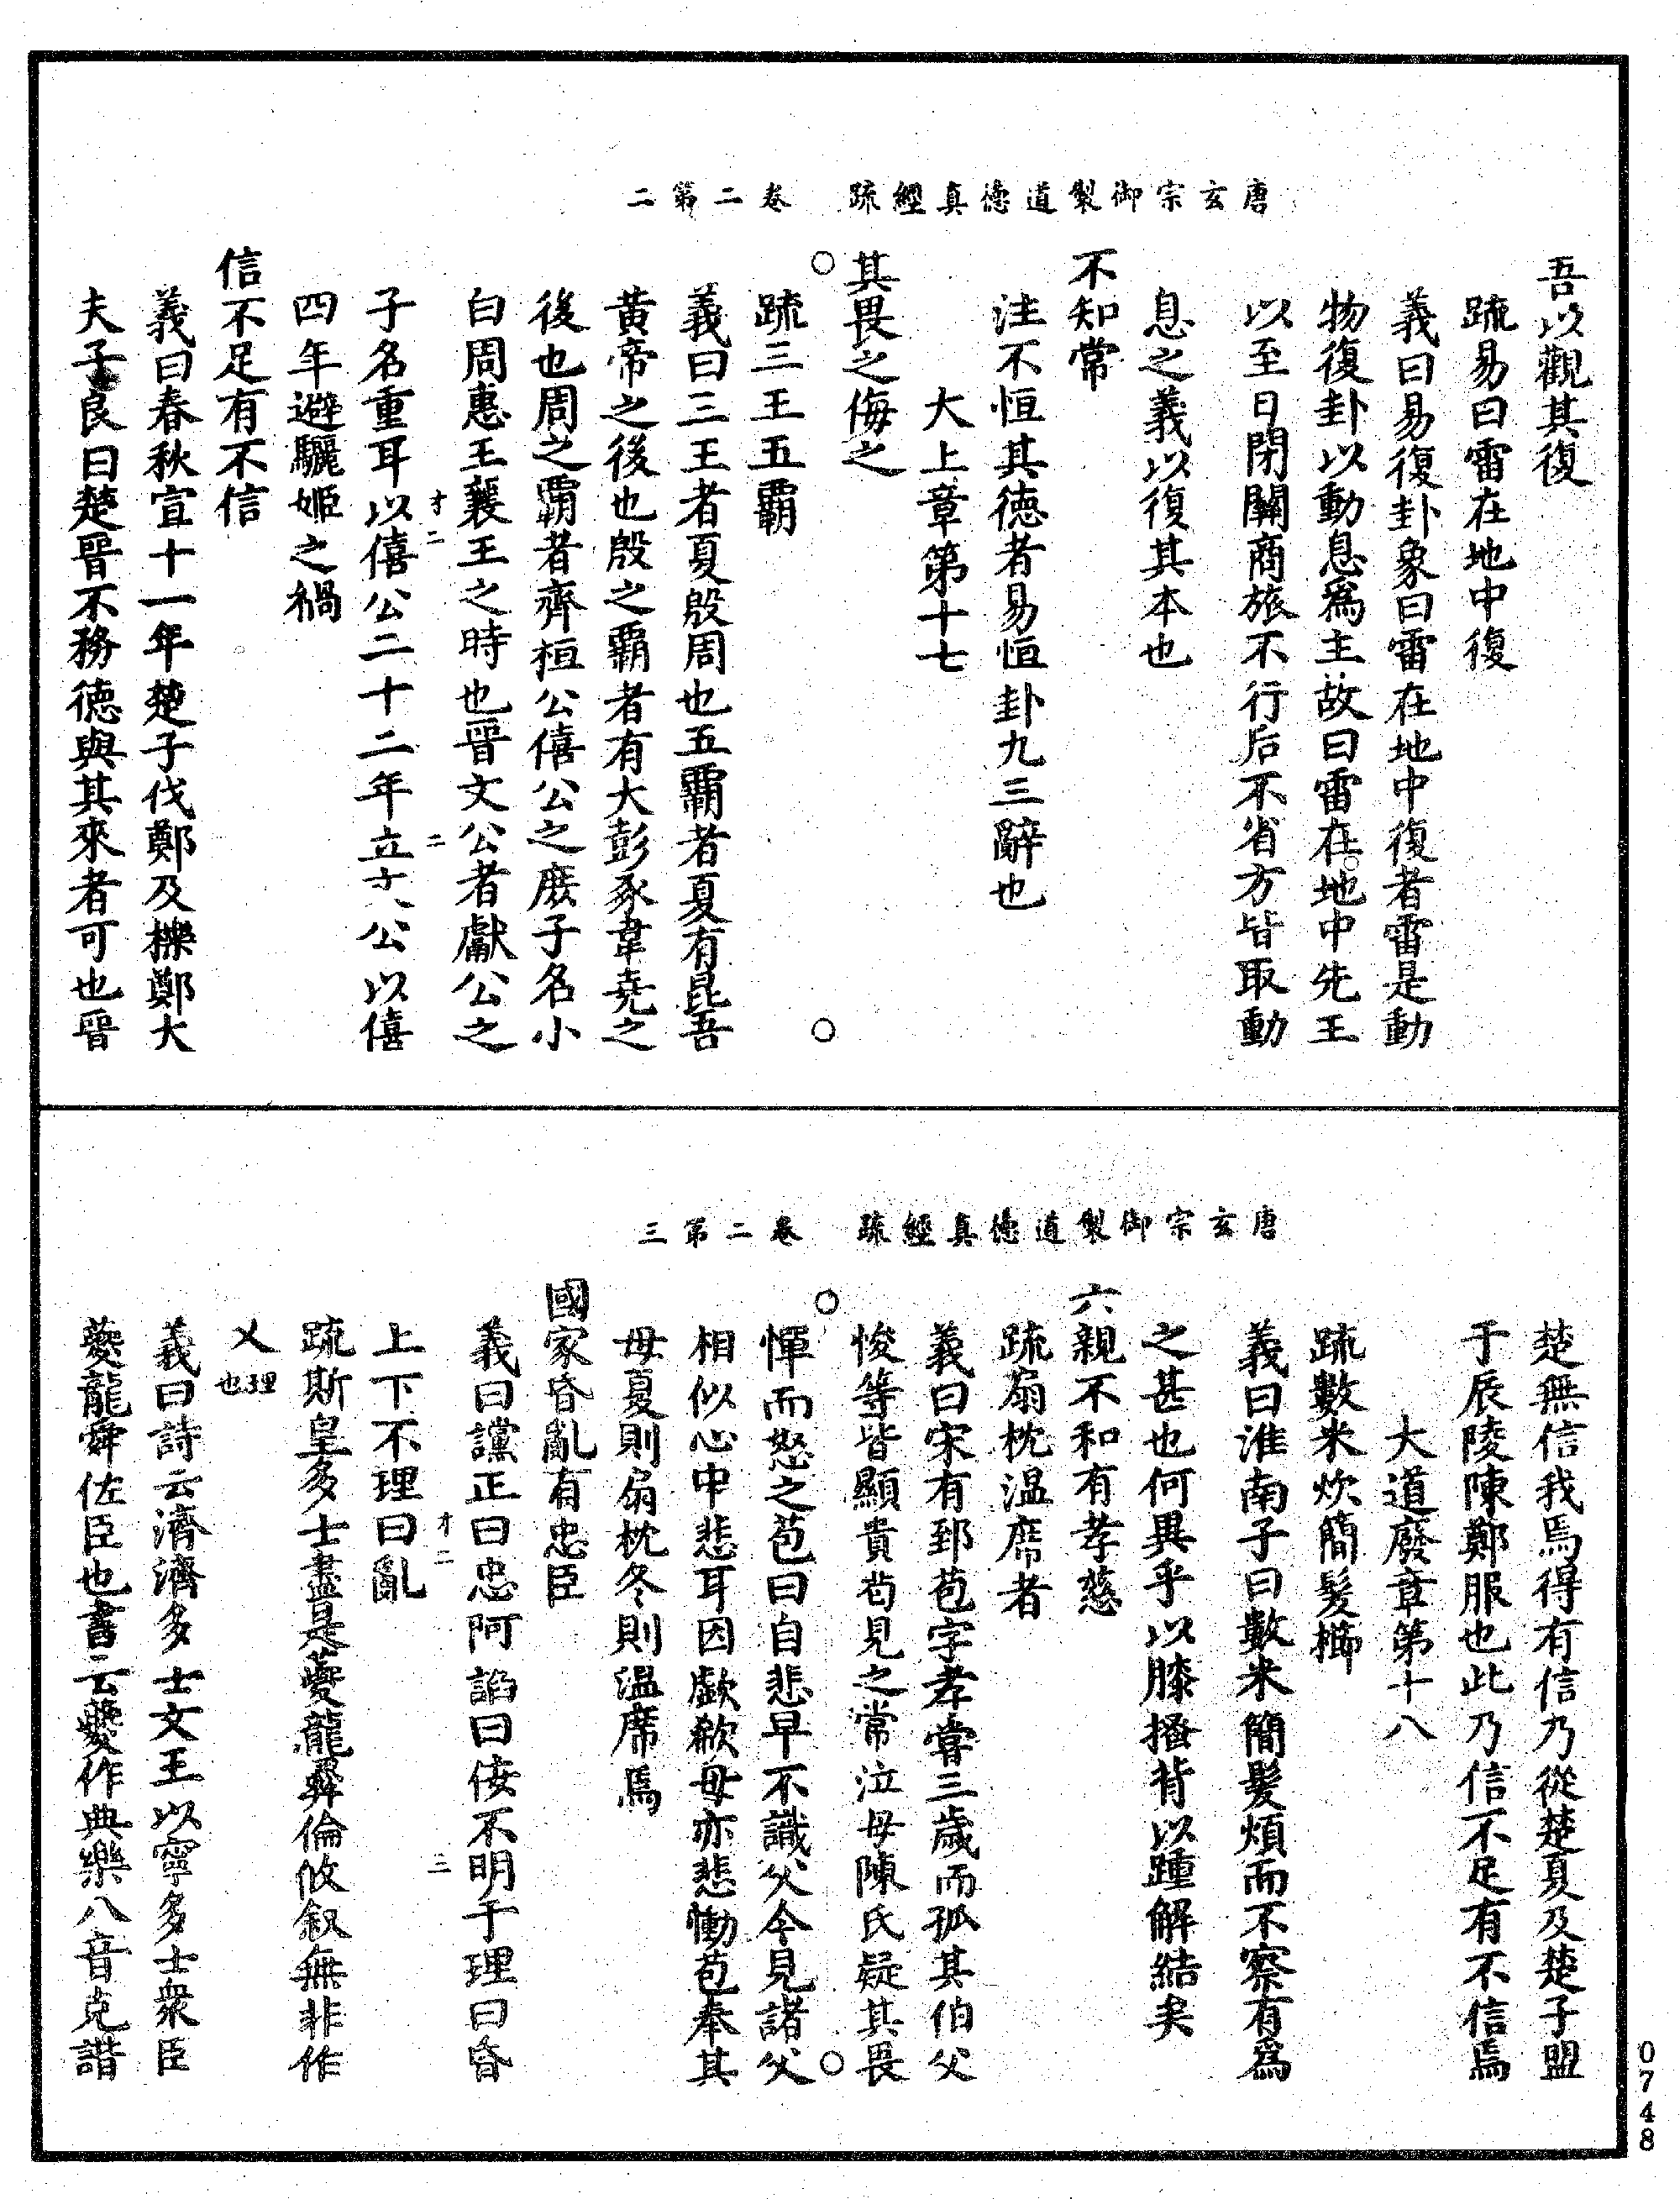 唐玄宗御製道德真經疏　卷二第二
吾以觀其復
疏易曰雷在地中復
義曰易復卦象曰雷在地中復者雷是動
物復卦以動息爲主故曰雷在地中先王
以至日閉關商旅不行后不省方皆取動
息之義以復其本也
不知常
注不恒其德者易恒卦九三辭也
大上章第十七
其畏之侮之
疏三王五霸
義曰三王者夏殷周也五霸者夏有昆吾
黃帝之後也殷之霸者有大彭豕韋堯之
後也周之霸者齊桓公僖公之庶子名小
白周惠王襄王之時也晉文公者獻公之
才二　二
子名重耳以僖公二十二年立才八公以僖
四年避驪姬之禍
信不足有不信
義曰春秋宣十一年楚子伐鄭及櫟鄭大
夫子良曰楚晉不務德與其來者可也晉
唐玄宗御製道德真經疏　卷二第三
楚無信我焉得有信乃從楚夏及楚子盟
于辰陵陳鄭服也此乃信不足有不信焉
大道廢章第十八
疏數米炊簡髮櫛
義曰淮南子曰數米簡髮煩而不察有爲
之甚也何異乎以膝搔背以踵解結矣
六親不和有孝慈
疏扇枕温席者
義曰宋有郅苞字孝嘗三歲而孤其伯父
悛等皆顯貴苟見之常泣母陳氏疑其畏
惲而怒之苞曰自悲早不識父今見諸父
相似心中悲耳因歔欷母亦悲慟苞奉其
母夏則扇枕冬則温席焉
國家昏亂有忠臣
義曰讜正曰忠阿諂曰佞不明于理曰昏
才二　三
上下不理曰亂
疏斯皇多士盡是夔龍彝倫攸敘無非作
乂理也
義曰詩云濟濟多士文王以寧多士衆臣
夔龍舜佐臣也書云夔作典樂八音克諧
0748